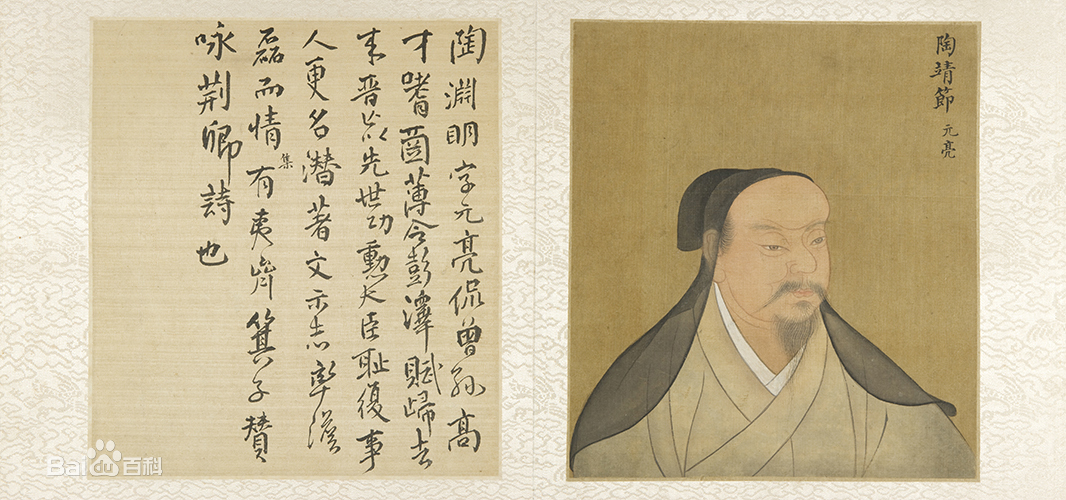 陶靖節 元亮
陶淵明字元亮侃曾孫高
才嗜薄令彭澤賦歸去
来晉以先世功勳大臣耻復事
人更名潛著文示志
磊而情集有夷齊箕子贊
咏荊卿詩也
Bai百科